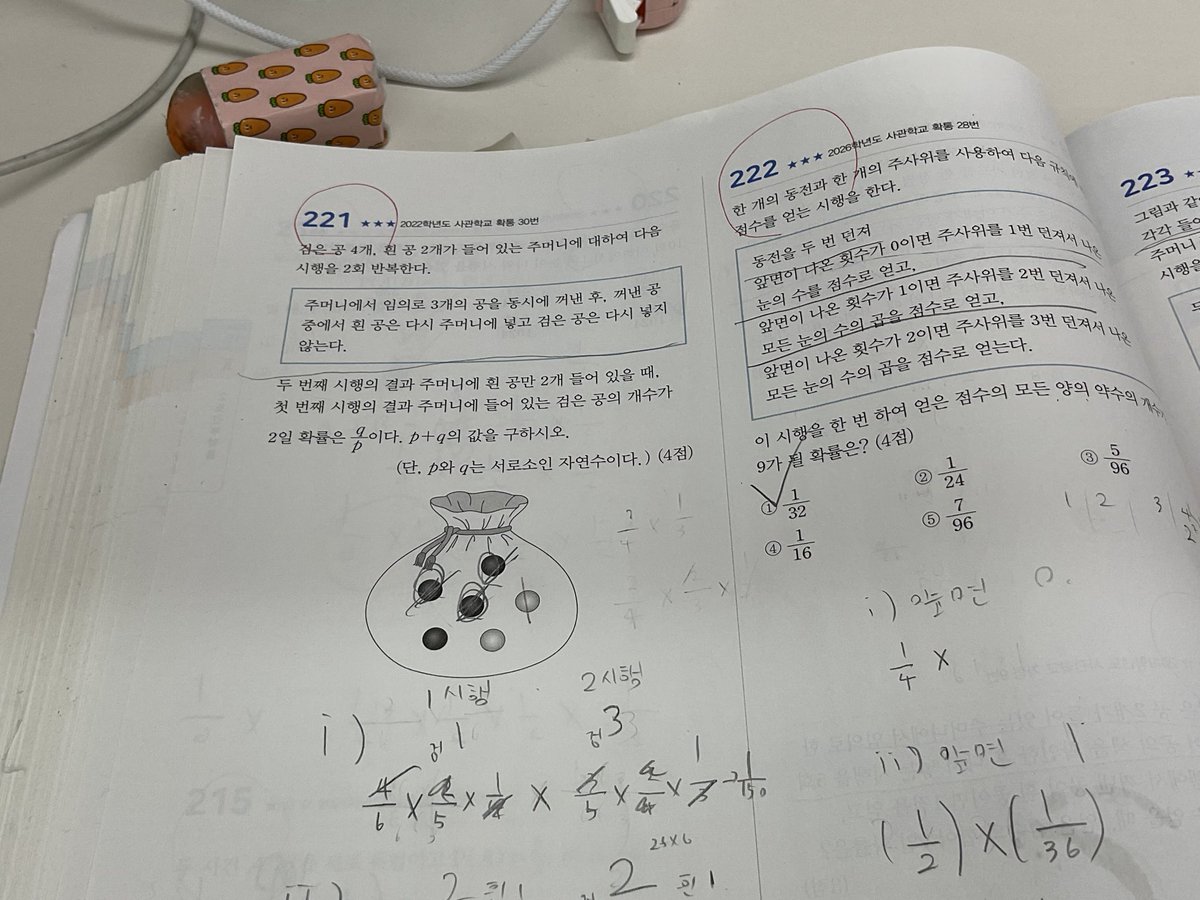 221 ★★★ 2022학년도 사관학교 확통 30번
검은 공 4개, 흰 공 2개가 들어 있는 주머니에 대하여 다음
시행을 2회 반복한다.
주머니에서 임의로 3개의 공을 동시에 꺼낸 후, 꺼낸 공
중에서 흰 공은 다시 주머니에 넣고 검은 공은 다시 넣지
않는다.
두 번째 시행의 결과 주머니에 흰 공만 2개 들어 있을 때,
첫 번째 시행의 결과 주머니에 들어 있는 검은 공의 개수가
2일 확률은 q/p이다. p+q의 값을 구하시오.
(단, p와 q는 서로소인 자연수이다.) (4점)
1시행 2시행
i) 검 1 검 3
4/6 × 2/5 × 1/4 × 3/5 × 2/4 × 1/3 1/150
25×6
ii) 2 흰 1 2 흰 1
215
222 ★★★ 2026학년도 사관학교 확통 28번
한 개의 동전과 한 개의 주사위를 사용하여 다음
점수를 얻는 시행을 한다.
동전을 두 번 던져
앞면이 나온 횟수가 0이면 주사위를 1번 던져서 나온
눈의 수를 점수로 얻고,
앞면이 나온 횟수가 1이면 주사위를 2번 던져서 나온
모든 눈의 수의 곱을 점수로 얻고,
앞면이 나온 횟수가 2이면 주사위를 3번 던져서 나온
모든 눈의 수의 곱을 점수로 얻는다.
이 시행을 한 번 하여 얻은 점수의 모든 양의 약수의 개수가
9가 될 확률은? (4점)
① 1/32 ② 1/24 ③ 5/96
④ 1/16 ⑤ 7/96
1 2 3 4
i) 앞면 0.
1/4 ×
ii) 앞면 1
(1/2) × (1/36)
223 ★
그림과 같
각각 들
주머니
시행을